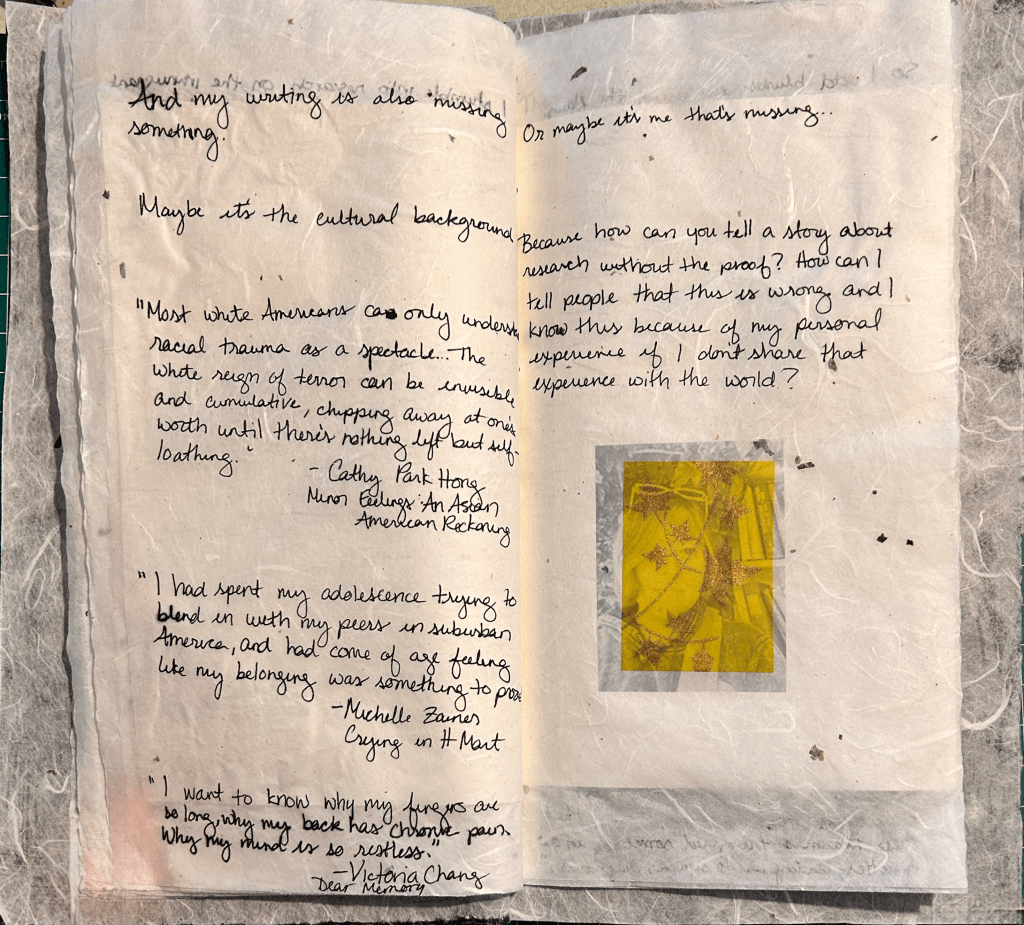 And my writing is also missing
something.
Maybe it's the cultural background
"Most white Americans can only underst
racial trauma as a spectacle... The
white reign of terror can be invisible
and cumulative, chipping away at one's
worth until there's nothing left but self-
loathing."
- Cathy Park Hong
Minor Feelings: An Asian
American Reckoning
"I had spent my adolescence trying to
blend in with my peers in suburban
America, and had come of age feeling
like my belonging was something to prove
-Michelle Zauner
Crying in H Mart
"I want to know why my fingers are
so long, why my back has chronic pain.
Why my mind is so restless."
-Victoria Chang
Dear Memory
Or maybe it's me that's missing...
Because how can you tell a story about
research without the proof? How can I
tell people that this is wrong and I
know this because of my personal
experience if I don't share that
experience with the world?